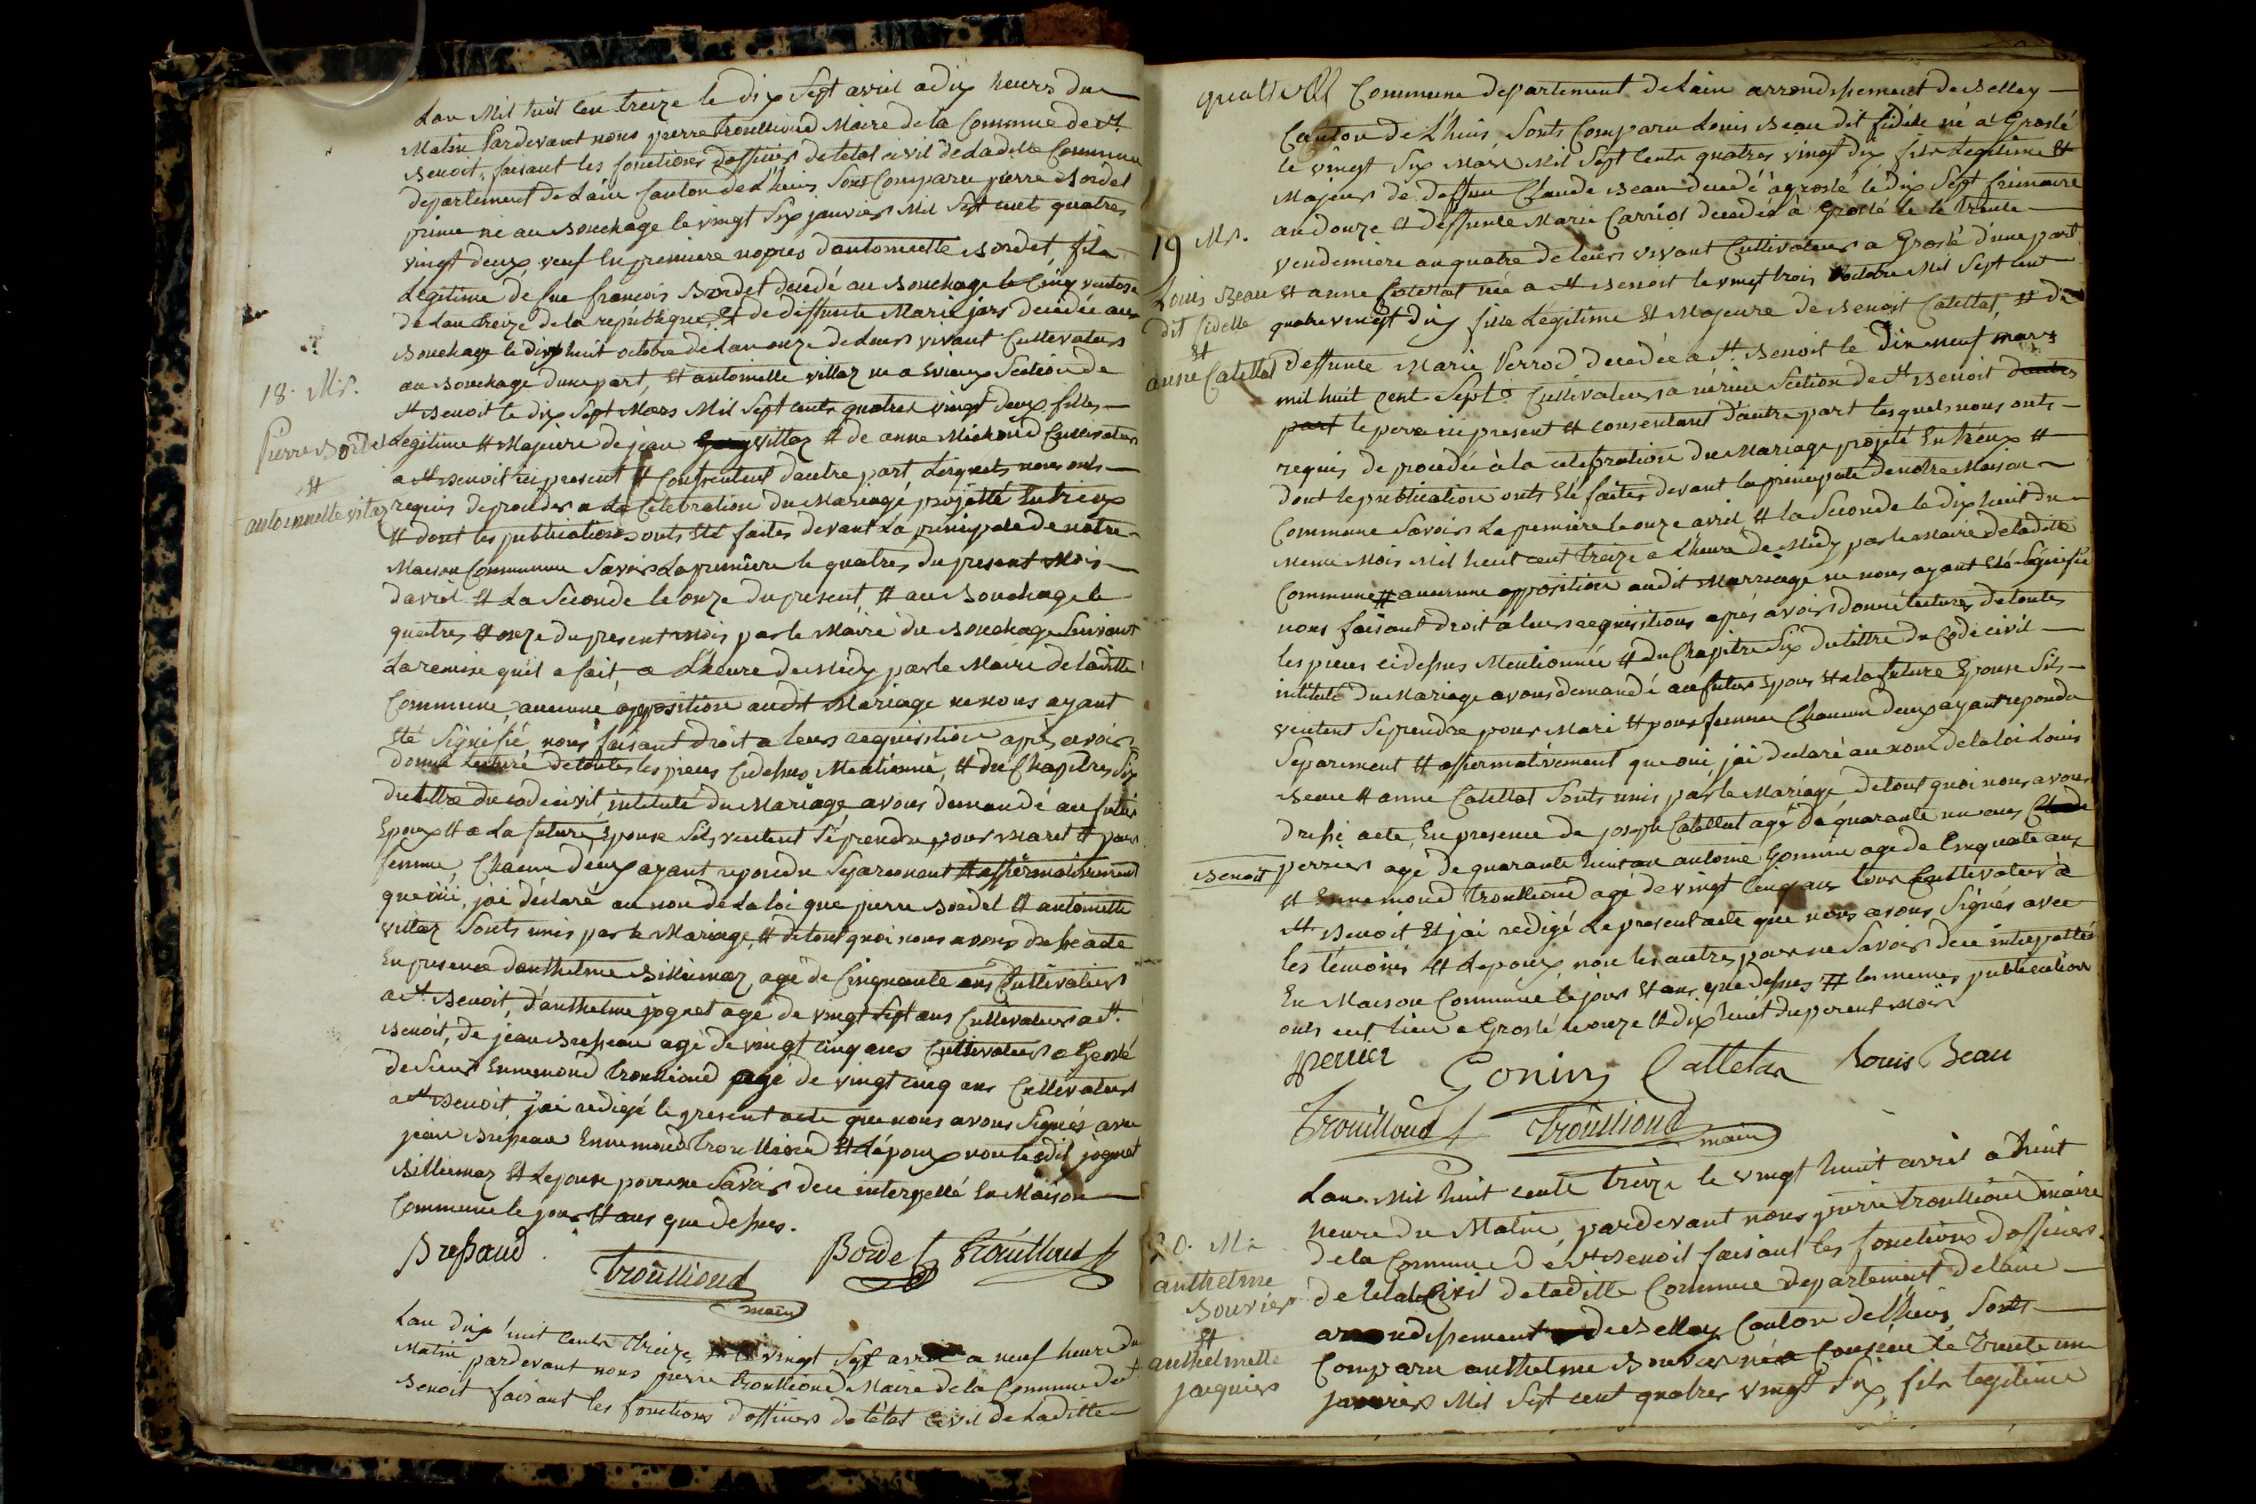 Lan Mil huit cen treize le dix Sept avril a dix heures du
Matin Pardevant nous pierre trouilloud Maire de la Commune de St
Benoit, faisant les fonctions dofficier de letat civil de Ladite Commune
departement de Lain Canton de Lhuis Sont Comparu pierre Bordel
prime né au Bouchage le vingt Six janvier Mil Sept cent quatres
vingt deux veuf En premiere nopces dantoinette Bordet, fils
Légitime de feu francois Bordet decedé au Bouchage le Cinq ventose
de Lan treize de la republique Et de deffunte Marie jars decedée au
Bouchage le dixhuit octobre de Lan onze de Leurs vivant Cultivateurs
au Bouchage dune part, Et antoinette villaz née a Evieux Section de
St Benoit le dix Sept Mars Mil Sept cents quatres vingt deux filles
Legitime Et Majeure de jean villaz Et de anne Michoud Cultivateur
a St Benoit ici present Et Consentent dautre part, Lesquels nous onts
requis de proceder a La Celebration du Mariage projetté Entreux
Et dont les publications onts Eté faites devant La principale de notre
Maison Commune Savoir La premiere le quatres du present Mois
davril Et La Seconde le onze du present, Et au Bouchage le
quatres Et onze du present Mois par le Maire du Bouchage Suivant
La remise quil a fait, a Lheure de Midy par le Maire de Ladite
Commune, aucune opposition audit Mariage ne nous ayant
Eté Signifié, nous faisant droit a leurs requisition après avoir
donné Lecture de toutes les pieces Cidessus Mentionné, Et du Chapitres Six
du tittre du code civil, intitulé du Mariage avons demandé au futur
Epoux Et a La future Epouse Sils veulent Se prendre pour Maret Et pour
femme, Chacun deux ayant repondu Separement Et affirmativement
que oui, jai déclaré au nom de La loi que pierre Bordel Et antoinette
villaz Sonts unis par le Mariage, Et de tout quoi nous avons dressé acte
En presence danthelme Billiemaz agé de Cinquante ans Cultivateurs
a St Benoit, d'anthelme jognet agé de vingt Sept ans Cultivateurs a St
Benoit, de jean Bressan agé de vingt cinq ans Cultivateurs a Groslé
de Sieur Ennemond trouilloud agé de vingt cinq ans Cultivateurs
a St Benoit, jai redigé le present acte que nous avons Signés avec
jean Bressan Ennemond trouilloud Et Lépoux non ledit jognet
Billiemaz Et Lepouse pour ne Savoir de ce interpellé En Maison
Commune le jour Et ans que dessus.
Bressand
Trouilloud
maire
Bordet Trouilloud
18. Mr.
Pierre Bordel
Et
antoinnette vilaz
Lan dix huit cents treize, le vingt Sept avril a neuf heure du
Matin pardevant nous pierre trouilloud Maire de la Commune de St
Benoit faisant les fonctions dofficiers de létat Civil de Ladite
quatre
Commune departement de Lain arrondissement de Belley
Canton de Lhuis Sonts Comparu Louis Beau dit fidéle né a Groslé
le vingt Six Mars Mil Sept Cents quatres vingt dix fils Légitime Et
Majeur de deffun Claude Beau decedé a groslé le dix Sept frimaire
an douze Et deffunte Marie Carriot decedée à Groslé le le trente
vendemiere an quatre de leurs vivant Cultivateurs a Groslé d'une part
Et anne Catellat née a St Benoit le vingt trois octobre Mil Sept cent
quatrevingt dix fille Légitime Et Majeure de Benoit Catellat, Et de
deffunte Marie Perrod decedée a St. Benoit le Dix neuf mars
mil huit cent Sept. Cultivateurs a nérieu Section de St Benoit dautre
part le pere ici present Et consentant d'autre part lesquels nous onts
requis de procedée à la celebration du Mariage projeté Entréux Et
dont le publication onts Eté faites devant la principale de notre Maison
Commune Savoir La premiere le onze avril Et la Seconde le dix huit du
meme Mois Mil huit cent treize a Lheure de Midy par le Maire de ladite
Commune Et aucunne opposition audit Marriage ne nous ayant Eté Signifié
nous faisant droit a leurs requisitions après avoir donné lectures de toutes
les pieces ci dessus Mentionnée Et du Chapitre Six du tittre du Code civil
intitulé du Mariage avons demandé au futur Epoux Et a la future Epouse Sils
veulent Se prendre pour Mari Et pour femme Chacun deux ayant repondu
Separement Et affirmativement que oui jai declaré au nom de la loi Louis
Beau Et anne Catellat Sonts unis par le Mariage de tout quoi nous avons
dressé acte, En presence de joseph Catellat agé de quarante un ans
Benoit perrier agé de quarante huit an antoine Gonnin agé de Cinquate ans
Et Ennemond trouilloud agé de vingt Cinq ans tous Cultivateurs à
St Benoit Et jai redigé Le present acte que nous avons Signés avec
les témoins Et Lepoux, non les autres pour ne Savoir de ce interpellés
En Maison Commune le jour Et ans que dessus Et les memes publications
onts eut lieu a Groslé le onze Et dix huit du present mois
perrier Gonin Cattelat Louis Beau
Trouilloud Trouilloud
maire
19 Mr.
Louis Beau
dit fidelle
Et
anne Catellat
Lan Mil huit cents treize le vingt huit avril a huit
heure du Matin, pardevant nous pierre trouilloud maire
de la Commune de St Benoit faisant les fonctions dofficiers
de letat Civil de ladite Commune departement de lain
arrondissement de Belley Canton de Lhuis, Sonts
Comparu anthelme Bouvier né a Conzieu le trente un
janvier Mil Sept cent quatres vingt Six, fils legitime
20. Mr
anthelme
Bouvier
Et
anthelmette
jacquier